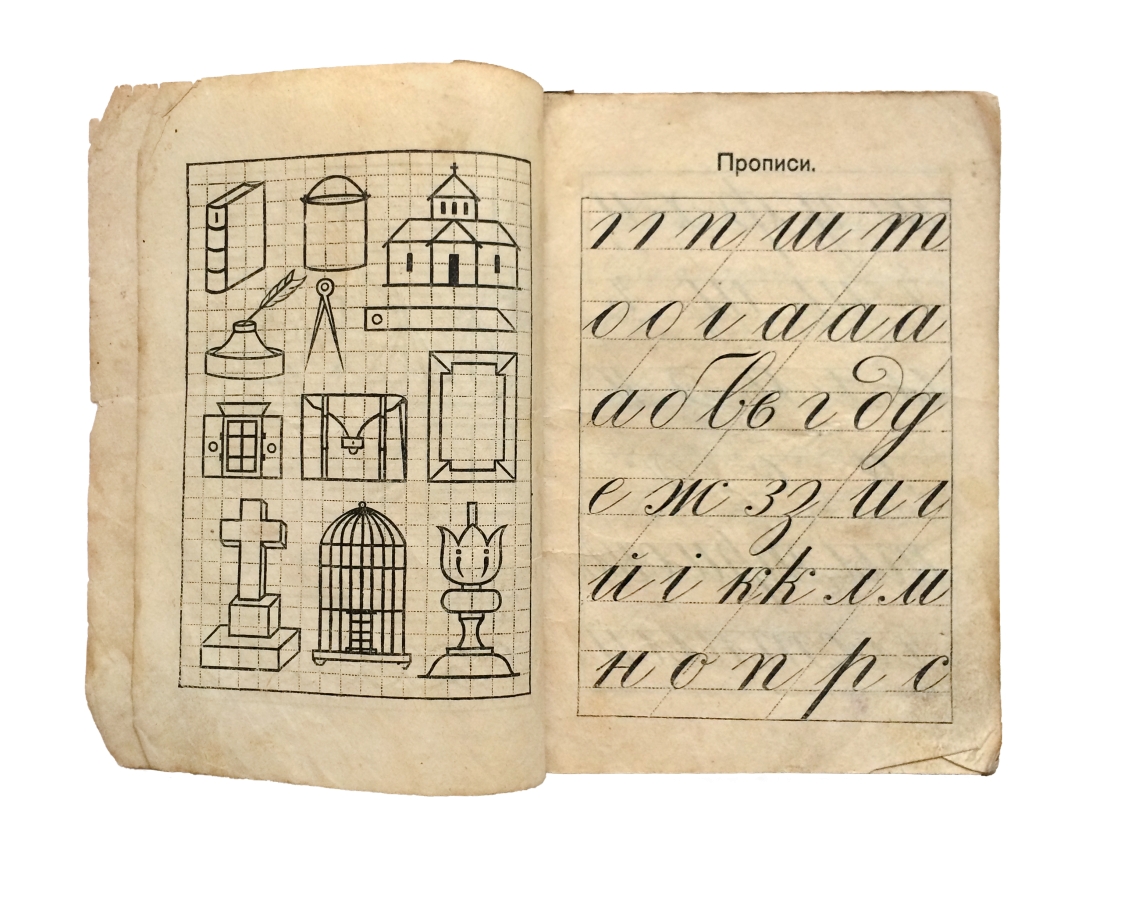 Прописи.
ı ı п ш т
о о ı а а а
а б в в г д д
е ж з з и и
й і к к л м
н о п р с